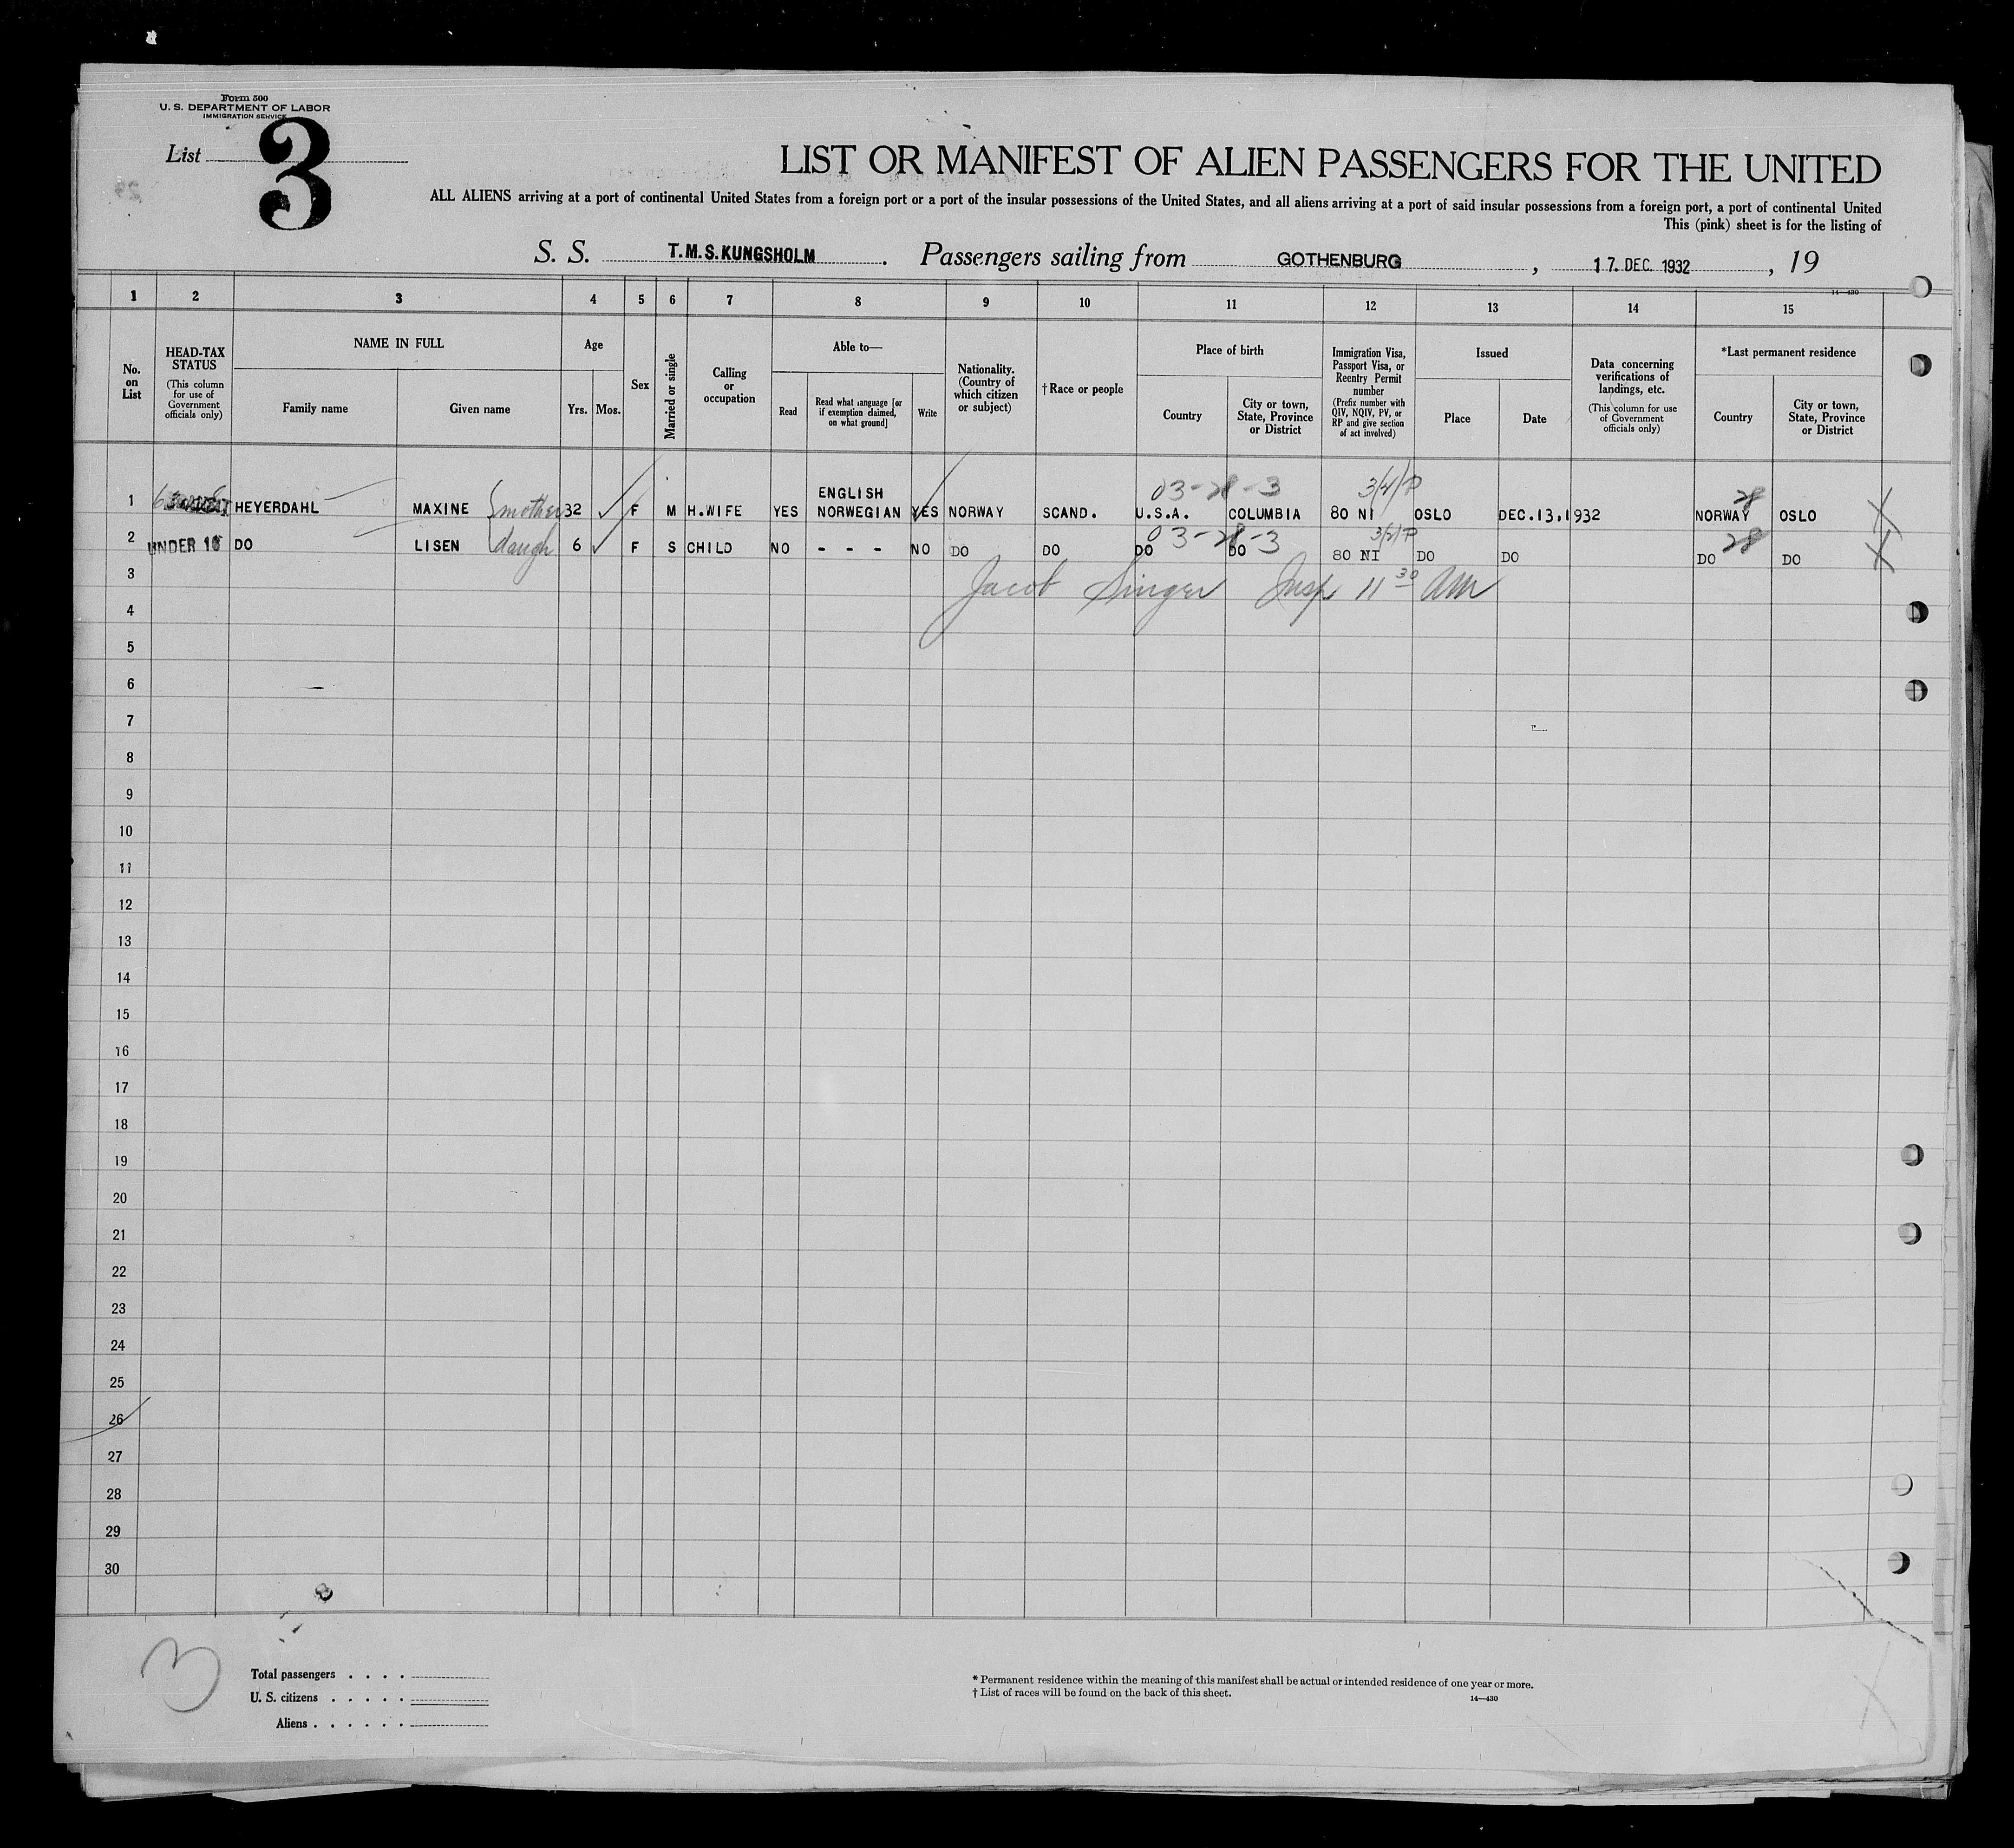 Form 500
U. S. DEPARTMENT OF LABOR
IMMIGRATION SERVICE
List 3
LIST OR MANIFEST OF ALIEN PASSENGERS FOR THE UNITED
ALL ALIENS arriving at a port of continental United States from a foreign port or a port of the insular possessions of the United States, and all aliens arriving at a port of said insular possessions from a foreign port, a port of continental United
This (pink) sheet is for the listing of
S. S. T.M.S.KUNGSHOLM. Passengers sailing from GOTHENBURG, 17. DEC. 1932, 19
14—430
1 2 3 4 5 6 7 8 9 10 11 12 13 14 15
No. on List
HEAD-TAX STATUS
(This column for use of Government officials only)
NAME IN FULL
Family name
Given name
Age
Yrs. Mos.
Sex
Married or single
Calling or occupation
Able to—
Read
Read what language [or if exemption claimed, on what ground]
Write
Nationality. (Country of which citizen or subject)
† Race or people
Place of birth
Country
City or town, State, Province or District
Immigration Visa, Passport Visa, or Reentry Permit number
(Prefix number with QIV, NQIV, PV, or RP and give section of act involved)
Issued
Place
Date
Data concerning verifications of landings, etc.
(This column for use of Government officials only)
*Last permanent residence
Country
City or town, State, Province or District
03-28-3 3/4/P 28
1 HEYERDAHL MAXINE mother 32 F M H.WIFE YES ENGLISH NORWEGIAN YES NORWAY SCAND. U.S.A. COLUMBIA 80 NI OSLO DEC.13.1932 NORWAY OSLO X
03-28-3 28
2 UNDER 16 DO LISEN daugh 6 F S CHILD NO - - - NO DO DO DO DO 80 NI DO DO DO DO X
3 Jacob Singer Insp 11 30 AM
4
5
6
7
8
9
10
11
12
13
14
15
16
17
18
19
20
21
22
23
24
25
26
27
28
29
30
3
Total passengers . . . .
U. S. citizens . . . . .
Aliens . . . . . .
* Permanent residence within the meaning of this manifest shall be actual or intended residence of one year or more.
† List of races will be found on the back of this sheet.
14—430